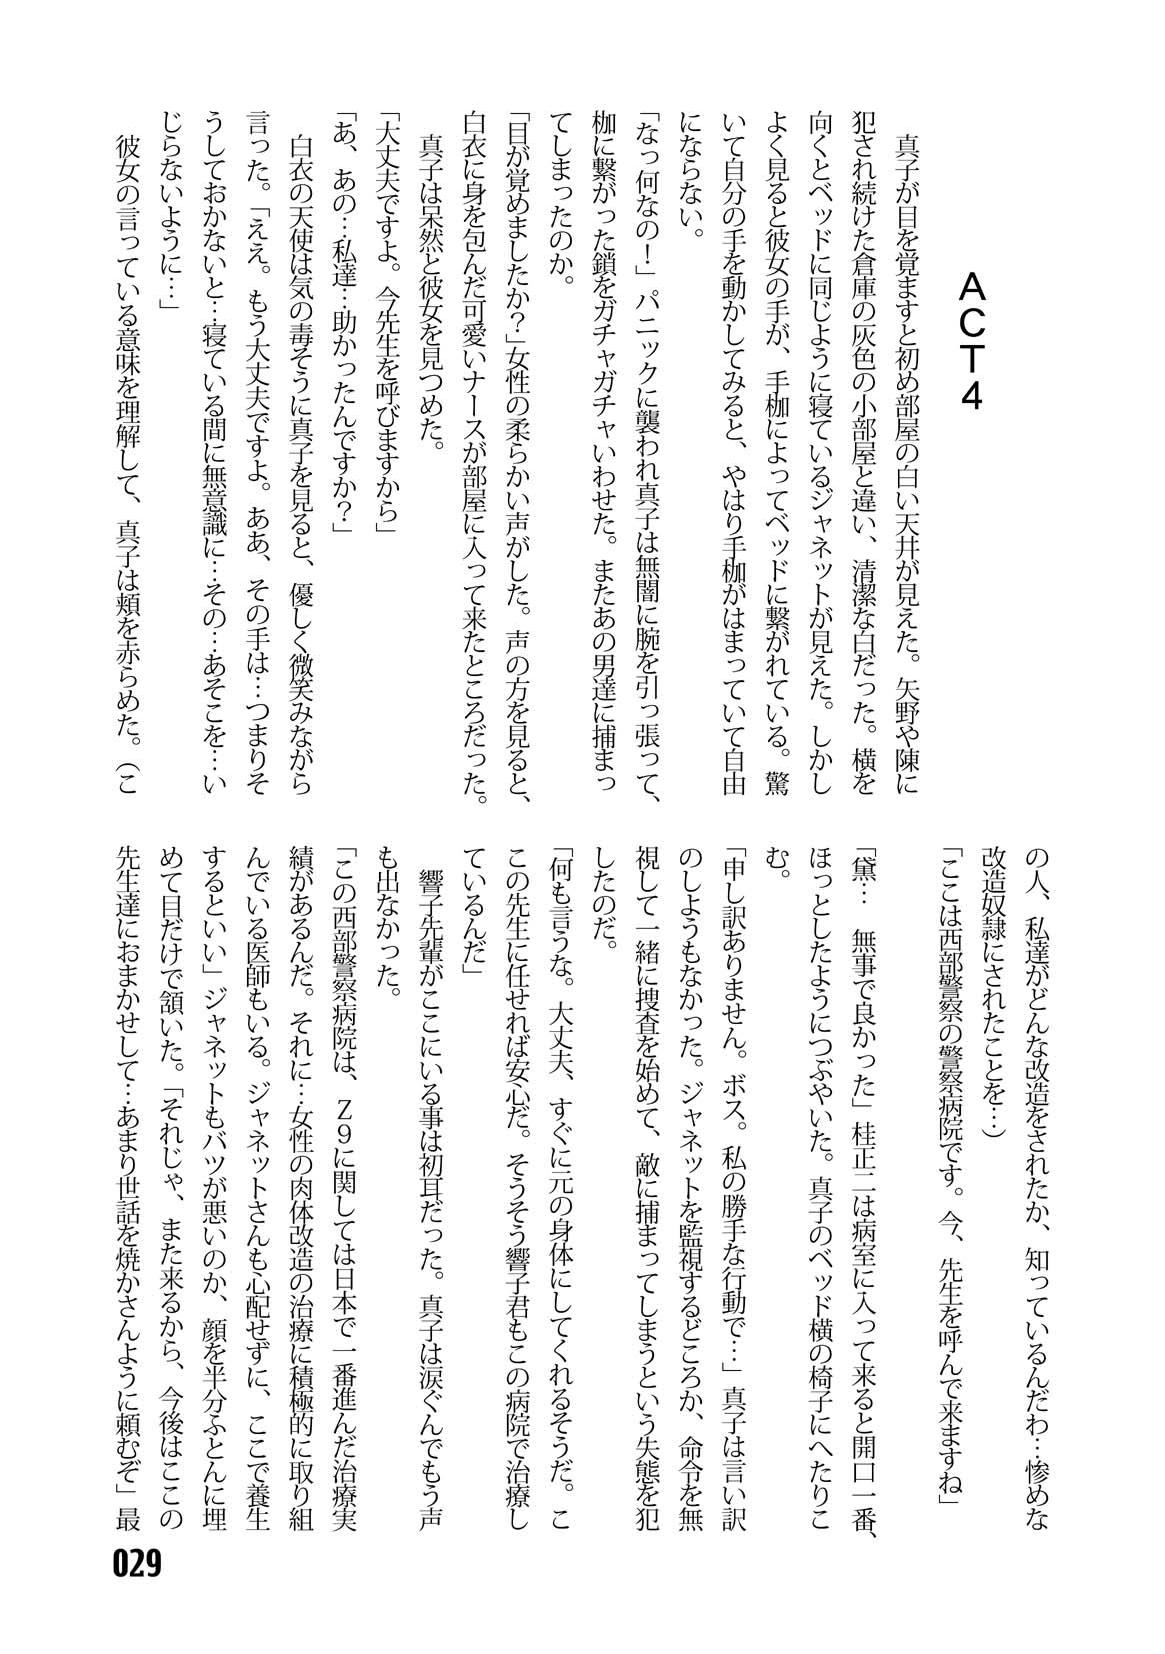 ACT4
　真子が目を覚ますと初め部屋の白い天井が見えた。矢野や陳に
犯され続けた倉庫の灰色の小部屋と違い、清潔な白だった。横を
向くとベッドに同じように寝ているジャネットが見えた。しかし
よく見ると彼女の手が、手枷によってベッドに繋がれている。驚
いて自分の手を動かしてみると、やはり手枷がはまっていて自由
にならない。
「なっ何なの！」パニックに襲われ真子は無闇に腕を引っ張って、
枷に繋がった鎖をガチャガチャいわせた。またあの男達に捕まっ
てしまったのか。
「目が覚めましたか？」女性の柔らかい声がした。声の方を見ると、
白衣に身を包んだ可愛いナースが部屋に入って来たところだった。
　真子は呆然と彼女を見つめた。
「大丈夫ですよ。今先生を呼びますから」
「あ、あの…私達…助かったんですか？」
　白衣の天使は気の毒そうに真子を見ると、優しく微笑みながら
言った。「ええ。もう大丈夫ですよ。ああ、その手は…つまりそ
うしておかないと…寝ている間に無意識に…その…あそこを…い
じらないように…」
　彼女の言っている意味を理解して、真子は頬を赤らめた。（こ
の人、私達がどんな改造をされたか、知っているんだわ…惨めな
改造奴隷にされたことを…）
「ここは西部警察の警察病院です。今、先生を呼んで来ますね」
「黛…　無事で良かった」桂正二は病室に入って来ると開口一番、
ほっとしたようにつぶやいた。真子のベッド横の椅子にへたりこ
む。
「申し訳ありません。ボス。私の勝手な行動で…」真子は言い訳
のしようもなかった。ジャネットを監視するどころか、命令を無
視して一緒に捜査を始めて、敵に捕まってしまうという失態を犯
したのだ。
「何も言うな。大丈夫、すぐに元の身体にしてくれるそうだ。こ
この先生に任せれば安心だ。そうそう響子君もこの病院で治療し
ているんだ」
　響子先輩がここにいる事は初耳だった。真子は涙ぐんでもう声
も出なかった。
「この西部警察病院は、Z9に関しては日本で一番進んだ治療実
績があるんだ。それに…女性の肉体改造の治療に積極的に取り組
んでいる医師もいる。ジャネットさんも心配せずに、ここで養生
するといい」ジャネットもバツが悪いのか、顔を半分ふとんに埋
めて目だけで頷いた。「それじゃ、また来るから、今後はここの
先生達におまかせして…あまり世話を焼かさんように頼むぞ」最
029